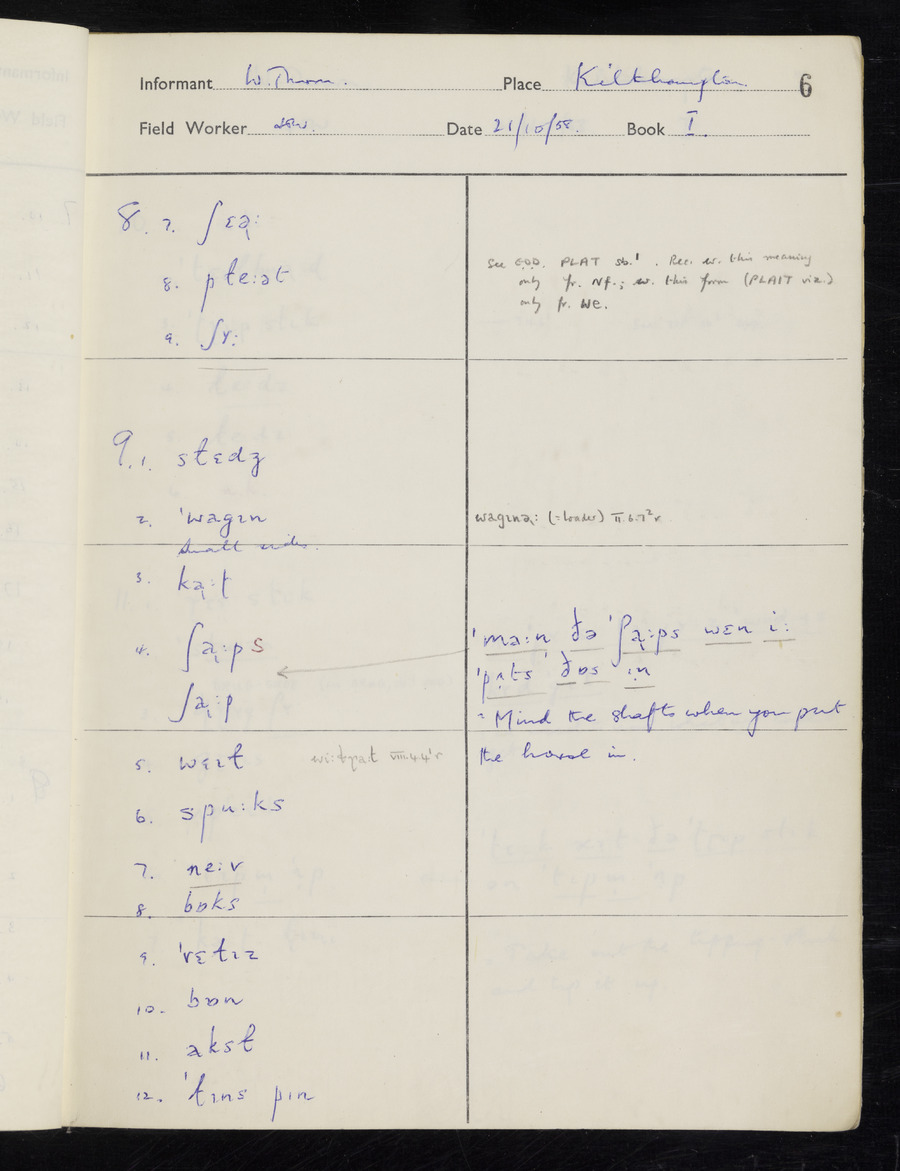 Informant W. Thorn. Place Kilkhampton. 6
Field Worker Date 21/10/58. Book I.
8. 7. ʃɛə̣ː
8. pleːət
See EDD. PLAT sb.¹. Rec. w. this meaning
only fr. Nf.; w. this form (PLAIT viz.)
only fr. We.
9. ʃʏː
9. 1. stɛdʒ
2. ˈwagɪn
wagɪnə̣ː (=loader) II.6.7²r
small sides.
3. kạːt
4. ʃạːps
ʃạːp
ˈmaːn ðə ˈʃạːps wɛn iː
ˈpʌts ðɒs ɪn
= Mind the shafts when you put
the horse in.
5. wɛɪt VIII.4.4¹r
6. spuːks
7. neːv
8. bɒks
9. ˈvɛtɪz
10. bɒn
11. akst
12. ˈtɪns pɪn